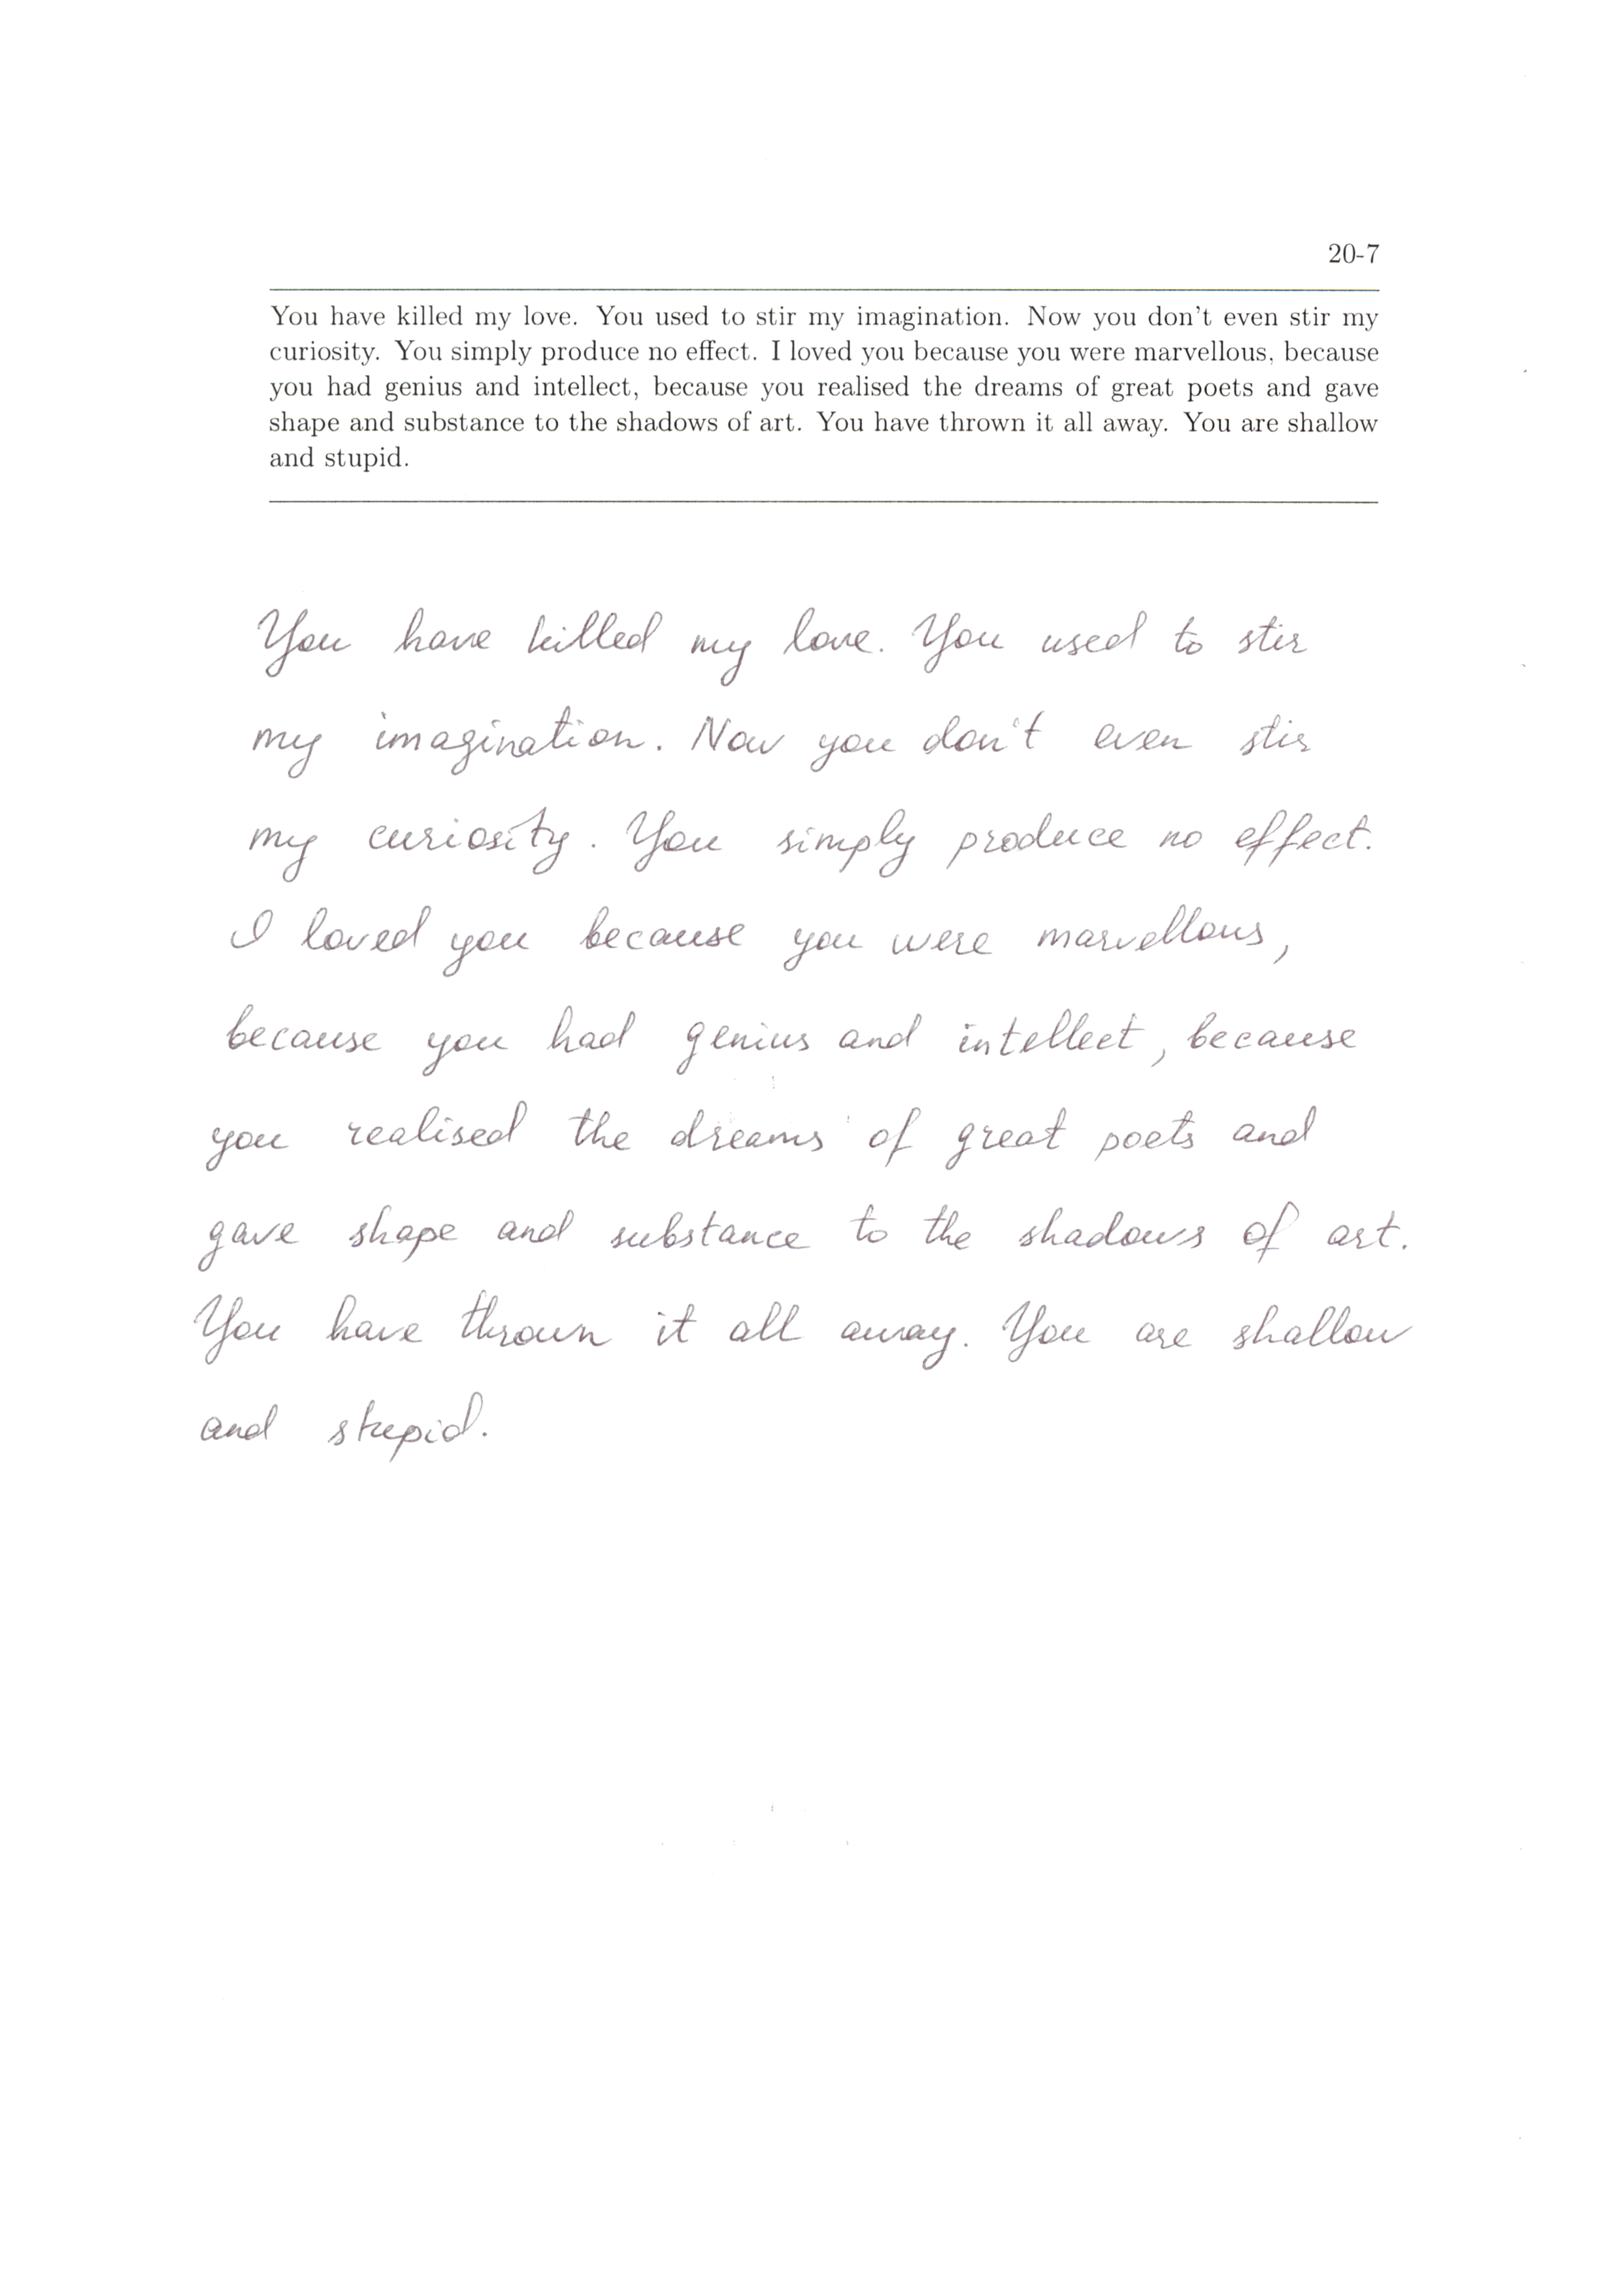 20-7
You have killed my love. You used to stir my imagination. Now you don't even stir my
curiosity. You simply produce no effect. I loved you because you were marvellous, because
you had genius and intellect, because you realised the dreams of great poets and gave
shape and substance to the shadows of art. You have thrown it all away. You are shallow
and stupid.
You have killed my love. You used to stir
my imagination. Now you don't even stir
my curiosity. You simply produce no effect.
I loved you because you were marvellous,
because you had genius and intellect, because
you realised the dreams of great poets and
gave shape and substance to the shadows of art.
You have thrown it all away. You are shallow
and stupid.